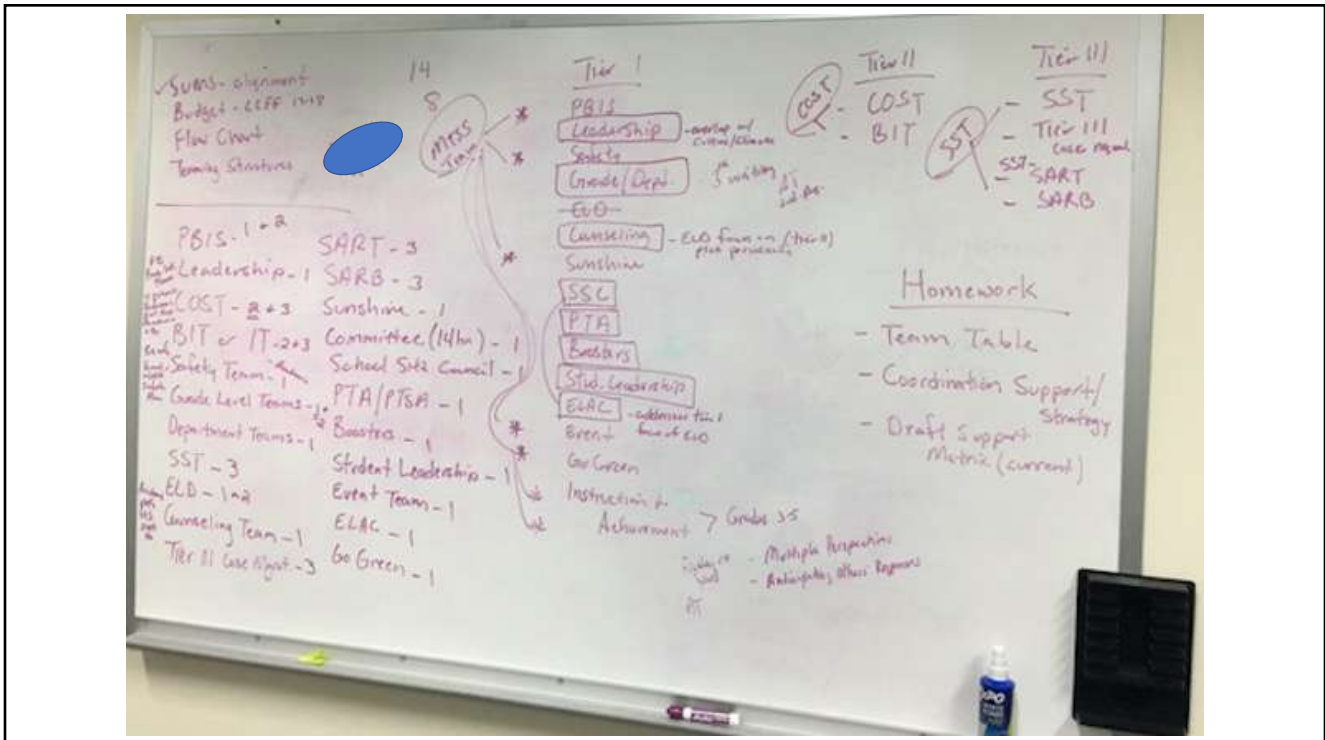 SUMS - alignment
Budget - LCFF 17-18
Flow Chart
Teaming Structures
14
8
MTSS
Team
PBIS - 1 + 2
Leadership - 1
COST - 2 + 3
BIT or IT - 2+3
Safety Team - 1
Grade Level Teams - 1
Department Teams - 1
SST - 3
ELD - 1 + 2
Counseling Team - 1
Tier III Case Mgmt. - 3
SART - 3
SARB - 3
Sunshine - 1
Committee (14hn) - 1
School Site Council - 1
PTA/PTSA - 1
Boosters - 1
Student Leadership - 1
Event Team - 1
ELAC - 1
Go Green - 1
Tier I
PBIS
Leadership - overlap w/
culture/climate
Safety
Grade/Dept. - writing
ELD
Counseling - ELD focus on (tier II)
Sunshine
SSC
PTA
Boosters
Stud. Leadership
ELAC - addresses tier I
focus of ELD
Event
Go Green
Instruction +
Achievement > Grades 3-5
- Multiple Perspectives
- Anticipating Others Responses
COST
Tier II
- COST
- BIT
SST
Tier III
- SST
- Tier III
case
SST - SART
- SARB
Homework
- Team Table
- Coordination Support/
Strategy
- Draft Support
Matrix (current)
EXPO